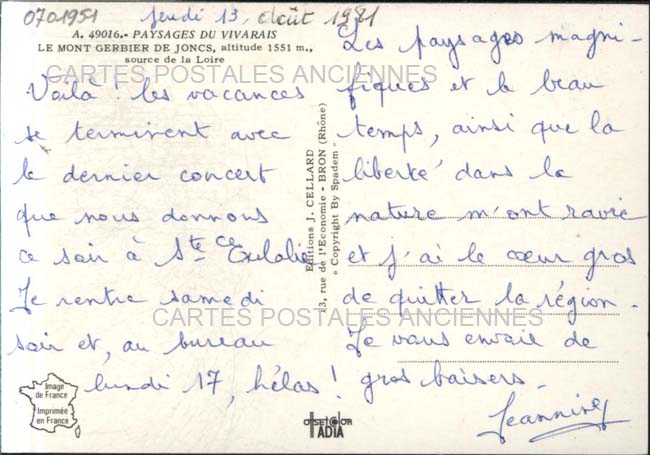 0701951
Jeudi 13, Août 1981
A. 49016. - PAYSAGES DU VIVARAIS
LE MONT GERBIER DE JONCS, altitude 1551 m.,
source de la Loire
CARTES POSTALES ANCIENNES
Voilà ! les vacances
se terminent avec
le dernier concert
que nous donnons
ce soir à Ste Eulalie
Je rentre samedi
soir et, au bureau
lundi 17, hélas !
Editions J. CELLARD
13, rue de l'Economie - BRON (Rhône)
« Copyright By Spadem »
Les paysages magni-
fiques et le beau
temps, ainsi que la
liberté dans la
nature m'ont ravie
et j'ai le cœur gros
de quitter la région.
Je vous envoie de
gros baisers.
Jeannine
CARTES POSTALES ANCIENNES
Image
de France
Imprimée
en France
OFFSET COLOR
IADIA